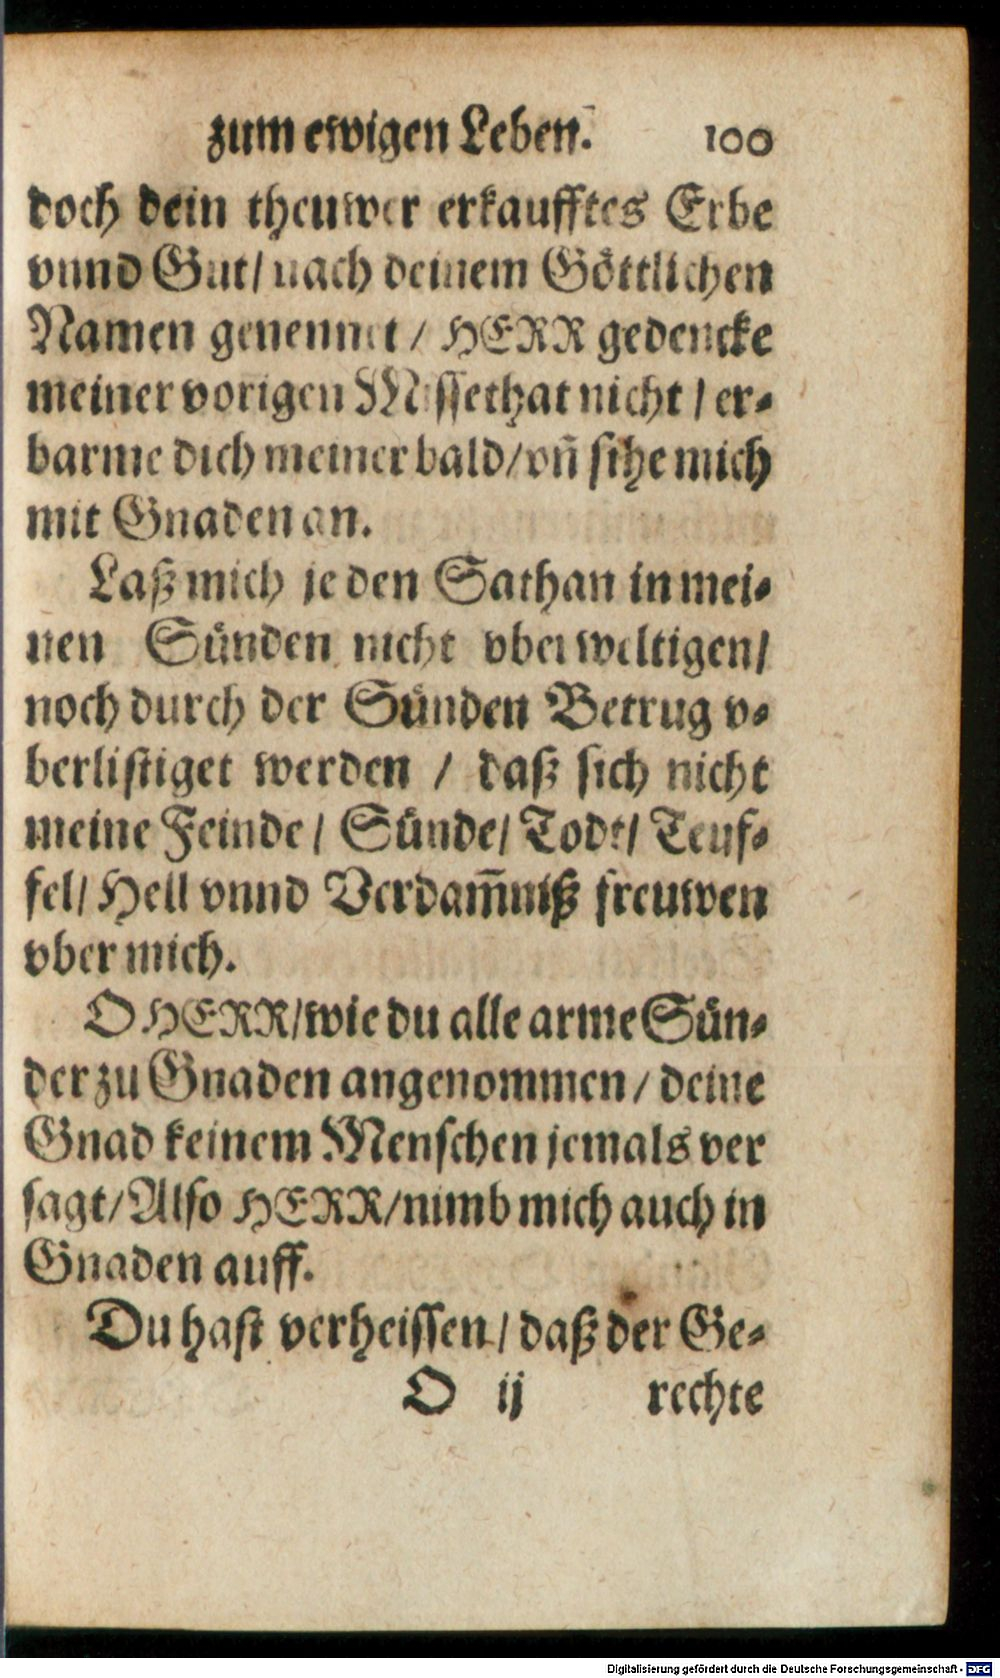 zum ewigen Leben. 100
doch dein theuwer erkaufftes Erbe
vnnd Gut / nach deinem Göttlichen
Namen genennet / HERR gedencke
meiner vorigen Missethat nicht / er-
barme dich meiner bald / vñ sihe mich
mit Gnaden an.
Laß mich je den Sathan in mei-
nen Sünden nicht vberweltigen /
noch durch der Sünden Betrug v-
berlistiget werden / daß sich nicht
meine Feinde / Sünde / Todt / Teuf-
fel / Hell vnnd Verdam̅niß freuwen
vber mich.
O HERR / wie du alle arme Sün-
der zu Gnaden angenommen / deine
Gnad keinem Menschen jemals ver
sagt / Also HERR / nimb mich auch in
Gnaden auff.
Du hast verheissen / daß der Ge-
O ij rechte
Digitalisierung gefördert durch die Deutsche Forschungsgemeinschaft - DFG